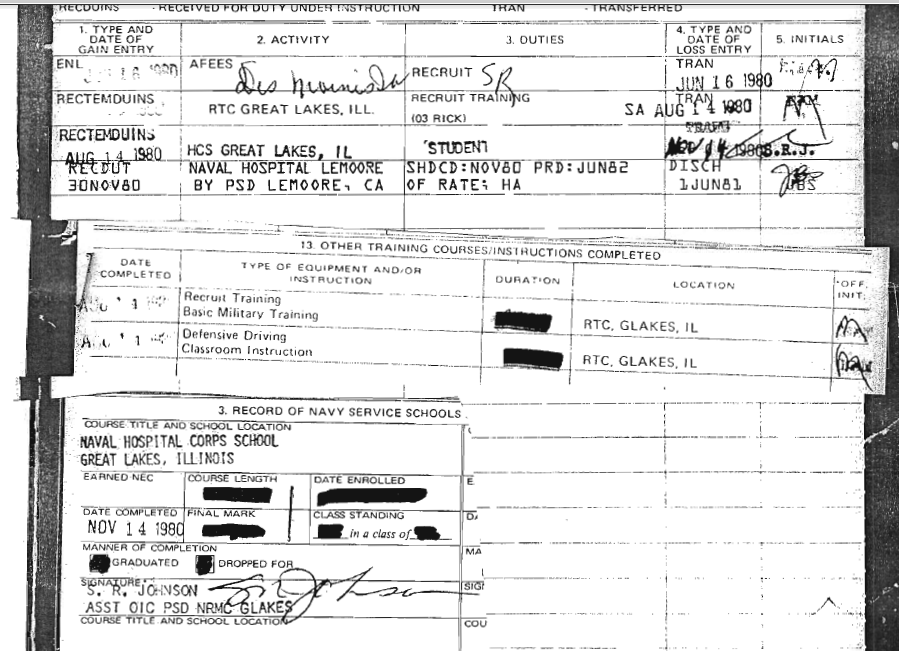 RECDUINS - RECEIVED FOR DUTY UNDER INSTRUCTION TRAN - TRANSFERRED
1. TYPE AND DATE OF GAIN ENTRY
2. ACTIVITY
3. DUTIES
4. TYPE AND DATE OF LOSS ENTRY
5. INITIALS
ENL
AFEES
Des Moines Ia
RECRUIT SR
TRAN
JUN 16 1980
RECTEMDUINS
RTC GREAT LAKES, ILL.
RECRUIT TRAINING
(03 RICK)
SA
TRAN
AUG 14 1980
RECTEMDUINS
AUG 14 1980
HCS GREAT LAKES, IL
STUDENT
TRAN
NOV 14 1980
S.R.J.
RECDUT
30NOV80
NAVAL HOSPITAL LEMOORE
BY PSD LEMOORE, CA
SHDCD:NOV80 PRD:JUN82
OF RATE: HA
DISCH
1JUN81
13. OTHER TRAINING COURSES/INSTRUCTIONS COMPLETED
DATE COMPLETED
TYPE OF EQUIPMENT AND/OR INSTRUCTION
DURATION
LOCATION
OFF. INIT.
Recruit Training
Basic Military Training
RTC, GLAKES, IL
Defensive Driving
Classroom Instruction
RTC, GLAKES, IL
3. RECORD OF NAVY SERVICE SCHOOLS
COURSE TITLE AND SCHOOL LOCATION
NAVAL HOSPITAL CORPS SCHOOL
GREAT LAKES, ILLINOIS
EARNED NEC
COURSE LENGTH
DATE ENROLLED
DATE COMPLETED
NOV 14 1980
FINAL MARK
CLASS STANDING
in a class of
MANNER OF COMPLETION
GRADUATED
DROPPED FOR
SIGNATURE
S. R. JOHNSON
ASST OIC PSD NRMC GLAKES
COURSE TITLE AND SCHOOL LOCATION